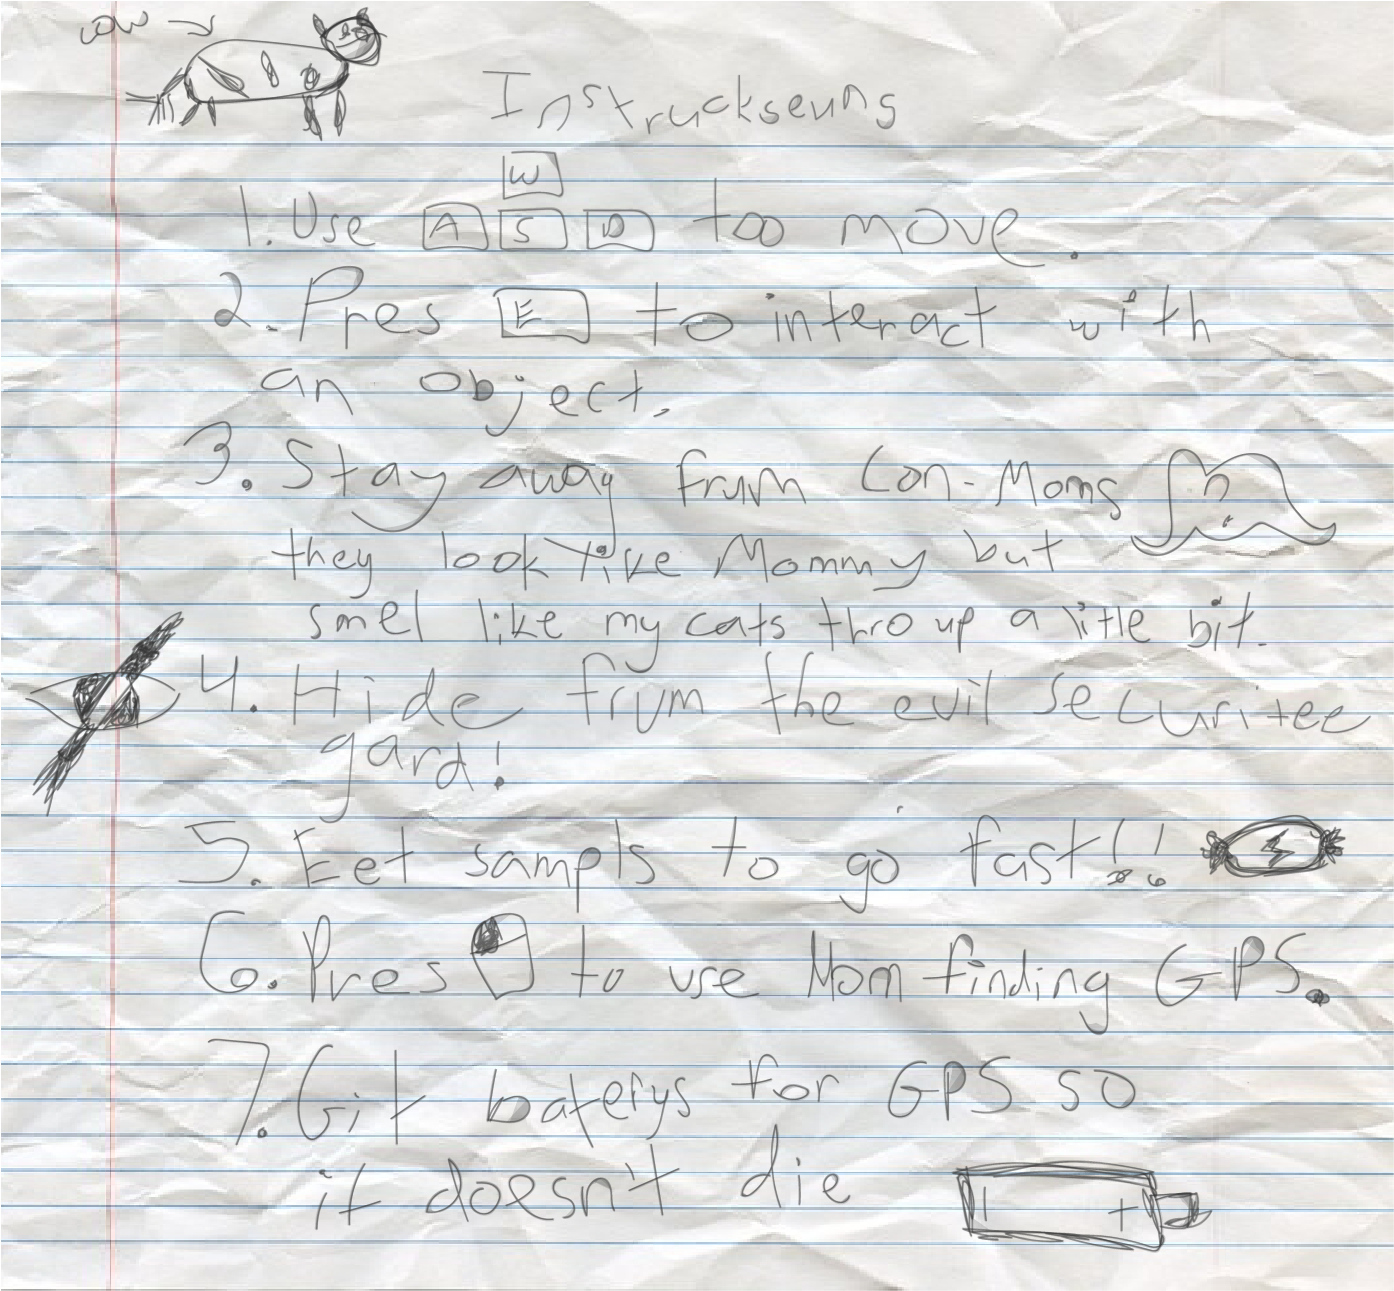 cow
Instruckseuns
W
1. Use A S D too move.
2. Pres E to interact with
an object.
3. Stay away frum Con-Moms
they look like Mommy but
smel like my cats thro up a litle bit.
4. Hide frum the evil securitee
gard!
5. Eet sampls to go fast!!
6. Pres to use Mom finding GPS.
7. Git baterys for GPS so
it doesn't die
- +